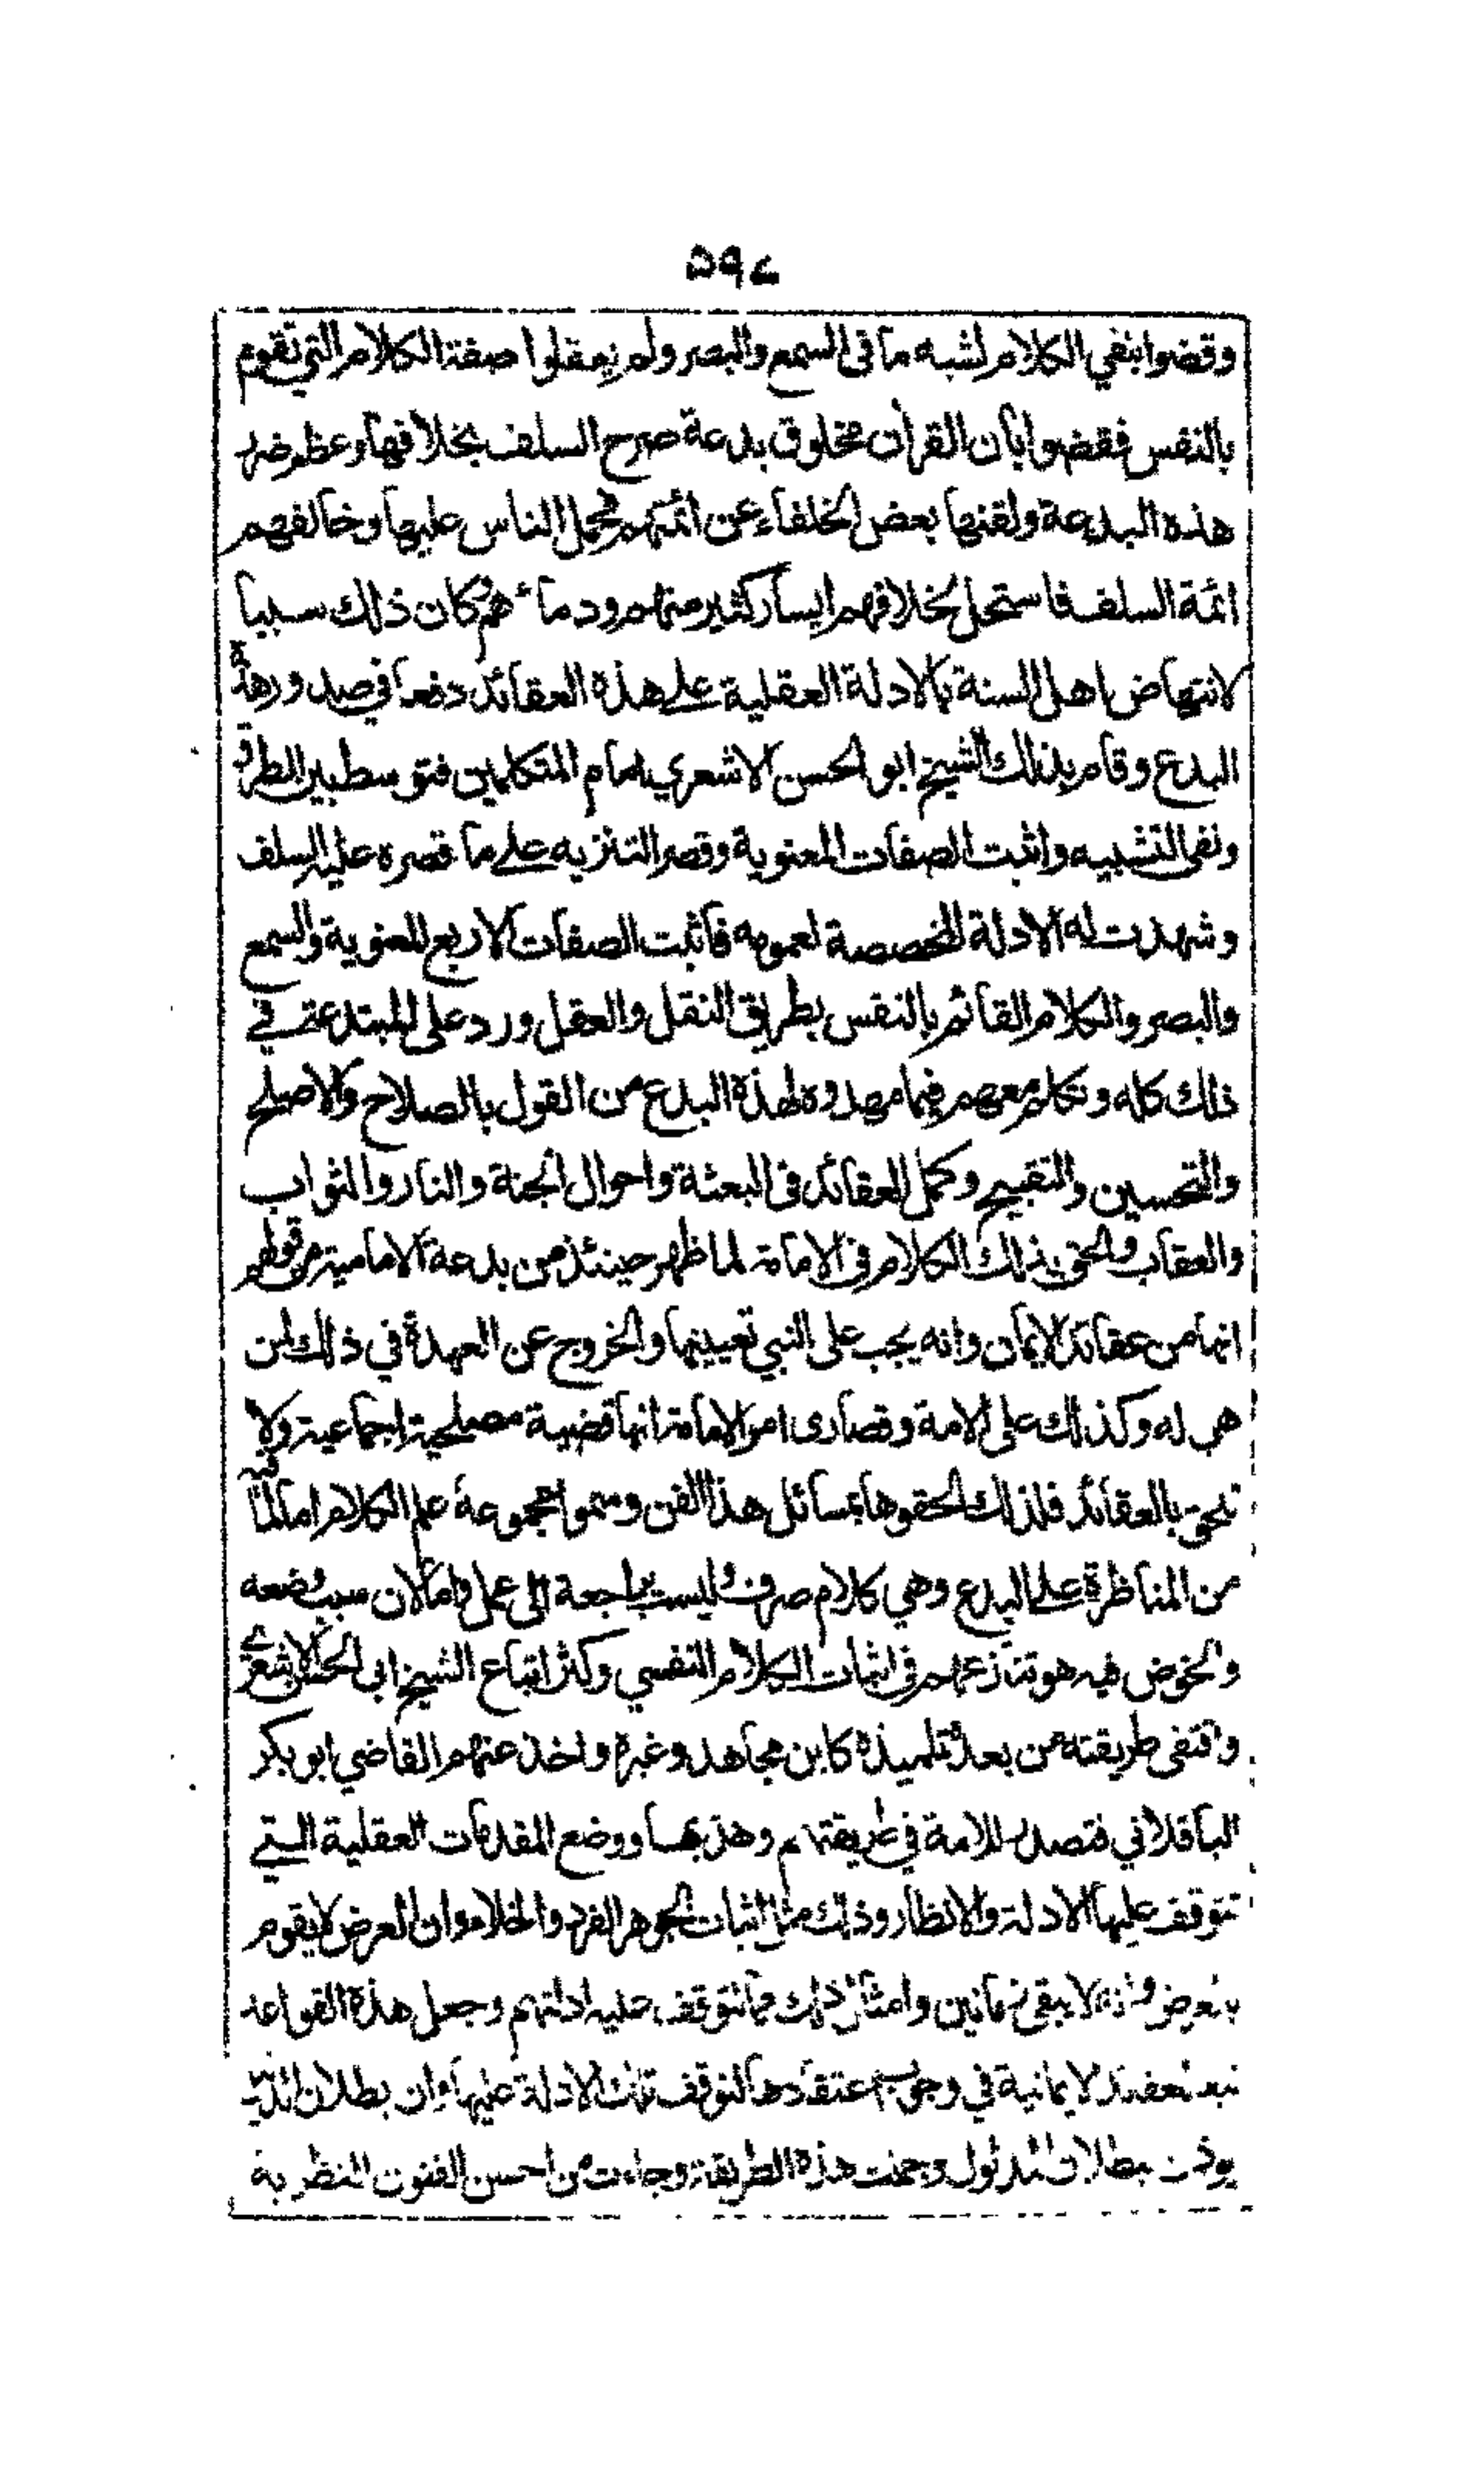 ٥٩٤
وقضوا بنفي الكلام لشبه ما في السمع والبصر ولم يعقلوا صفة الكلام التي تقوم
بالنفس فقضوا بان القرآن مخلوق بدعة صرح السلف بخلافها وعظم ضرر
هذه البدعة ولقنها بعض الخلفاء عن ائمتهم فحمل الناس عليها وخالفهم
ائمة السلف فاستحل لخلافهم ايسار كثير منهم ودماءهم وكان ذلك سببا
لانتهاض اهل السنة بالادلة العقلية على هذه العقائد دفعا في صدور هذه
البدع وقام بذلك الشيخ ابو الحسن الاشعري امام المتكلمين فتوسط بين الطرق
ونفى التشبيه واثبت الصفات المعنوية وقصر التنزيه على ما قصره عليه السلف
وشهدت له الادلة المخصصة لعمومه فاثبت الصفات الاربع المعنوية والسمع
والبصر والكلام القائم بالنفس بطريق النقل والعقل ورد على المبتدعة في
ذلك كله وتكلم معهم فيما مهدوه لهذه البدع من القول بالصلاح والاصلح
والتحسين والتقبيح وكمل العقائد في البعثة واحوال الجنة والنار والثواب
والعقاب والحق بذلك الكلام في الامامة لما ظهر حينئذ من بدعة الامامية من قولهم
انها من عقائد الايمان وانه يجب على النبي تعيينها والخروج عن العهدة في ذلك لمن
هي له وكذلك على الامة وقصارى امر الامامة انها قضية مصلحية اجماعية ولا
تلحق بالعقائد فلذلك الحقوها بمسائل هذا الفن وسموا مجموعة علم الكلام اما لما فيه
من المناظرة على البدع وهي كلام صرف وليست براجعة الى عمل واما لان سبب وضعه
والخوض فيه هو تنازعهم في اثبات الكلام النفسي وكثر اتباع الشيخ ابي الحسن الاشعري
واقتفى طريقته من بعده تلميذه كابن مجاهد وغيره واخذ عنهم القاضي ابو بكر
الباقلاني فتصدر للامامة في طريقتهم وهذبها ووضع المقدمات العقلية التي
تتوقف عليها الادلة والانظار وذلك مثل اثبات الجوهر الفرد والخلاء وان العرض لا يقوم
بالعرض وانه لا يبقى زمانين وامثال ذلك مما تتوقف عليه ادلتهم وجعل هذه القواعد
تبعا للعقائد الايمانية في وجوب اعتقادها لتوقف تلك الادلة عليها وان بطلان الدليل
يوذن ببطلان المدلول وجملت هذه الطريقة وجاءت من احسن الفنون النظرية